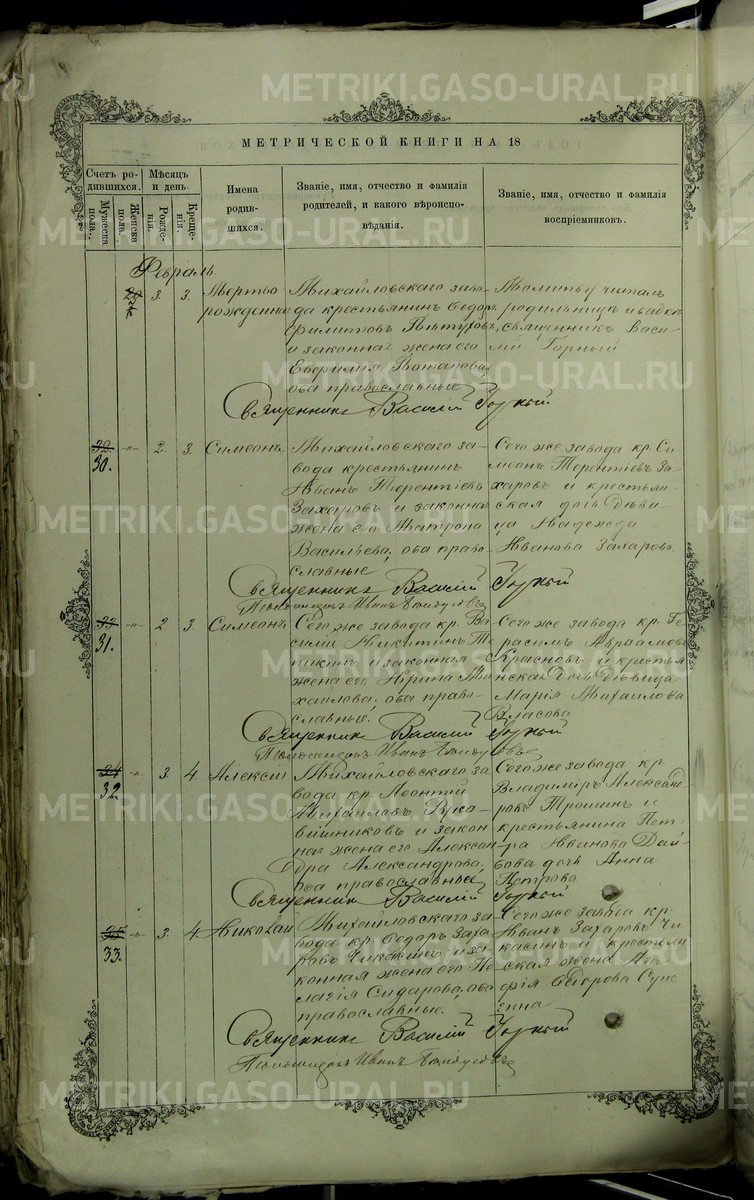 METRIKI.GASO-URAL.RU
МЕТРИЧЕСКОЙ КНИГИ НА 18
Счетъ ро-
дившихся.
Мѣсяцъ
и день
Мужеска
пола.
Женска
пола.
Рожде-
нія.
Креще-
нія.
Имена
родив-
шихся.
Званіе, имя, отчество и фамилія
родителей, и какого вѣроиспо-
вѣданія.
Званіе, имя, отчество и фамилія
воспріемниковъ.
Февраль
3. 3.
Мертво
рожденная
Михайловскаго заво-
да крестьянинъ Ѳедоръ
Пѣтуховъ,
и законная жена его
Евфимія Потапова,
оба православные
Молитву читалъ
родильницѣ
священникъ Васи-
лій Горный
Священникъ Василій Горный
32
30. -"- 2. 3.
Симеонъ.
Михайловскаго за-
вода крестьянинъ
Иванъ Терентіевъ
Захаровъ и законная
жена его Матрона
Васильева, оба право-
славные
Сего же завода кр. Си-
меонъ Терентіевъ За-
харовъ и крестьян-
ская дочь дѣви-
ца Надежда
Иванова Захарова.
Священникъ Василій Горный
Псаломщикъ Иванъ
31. -"- 2 3
Симеонъ
Сего же завода кр. Ва-
силій Никитинъ
и законная
жена его Ирина Ми-
хайлова, оба право-
славные.
Сего же завода кр. Ге-
расимъ Авраамовъ
Красновъ и крестья-
нская дочь дѣвица
Марія Михаилова
Власова
Священникъ Василій Горный
Псаломщикъ Иванъ
34
32. -"- 3 4
Алексій
Михайловскаго за-
вода кр. Леонтій
Михаиловъ Рука-
вишниковъ и закон-
ная жена его Алексан-
дра Александрова,
оба православные
Сего же завода кр.
Владиміръ Александ-
ровъ Трошинъ и
крестьянина Пет-
ра Иванова
дочь Анна
Петрова
Священникъ Василій Горный
35
33. -"- 3. 4
Николай
Михайловскаго за-
вода кр. Ѳедоръ Заха-
ровъ Чикасинъ и за-
конная жена его Пе-
лагія Сидорова, оба
православные.
Сего же завода кр.
Иванъ Захаровъ Чи-
касинъ и крестьян-
ская жена Ага-
фія Ѳедорова
Священникъ Василій Горный
Псаломщикъ Иванъ
METRIKI.GASO-URAL.RU
METRIKI.GASO-URAL.RU
METRIKI.GASO-URAL.RU
METRIKI.GASO-URAL.RU
METRIKI.GASO-URAL.RU
METRIKI.GASO-URAL.RU
METRIKI.GASO-URAL.RU